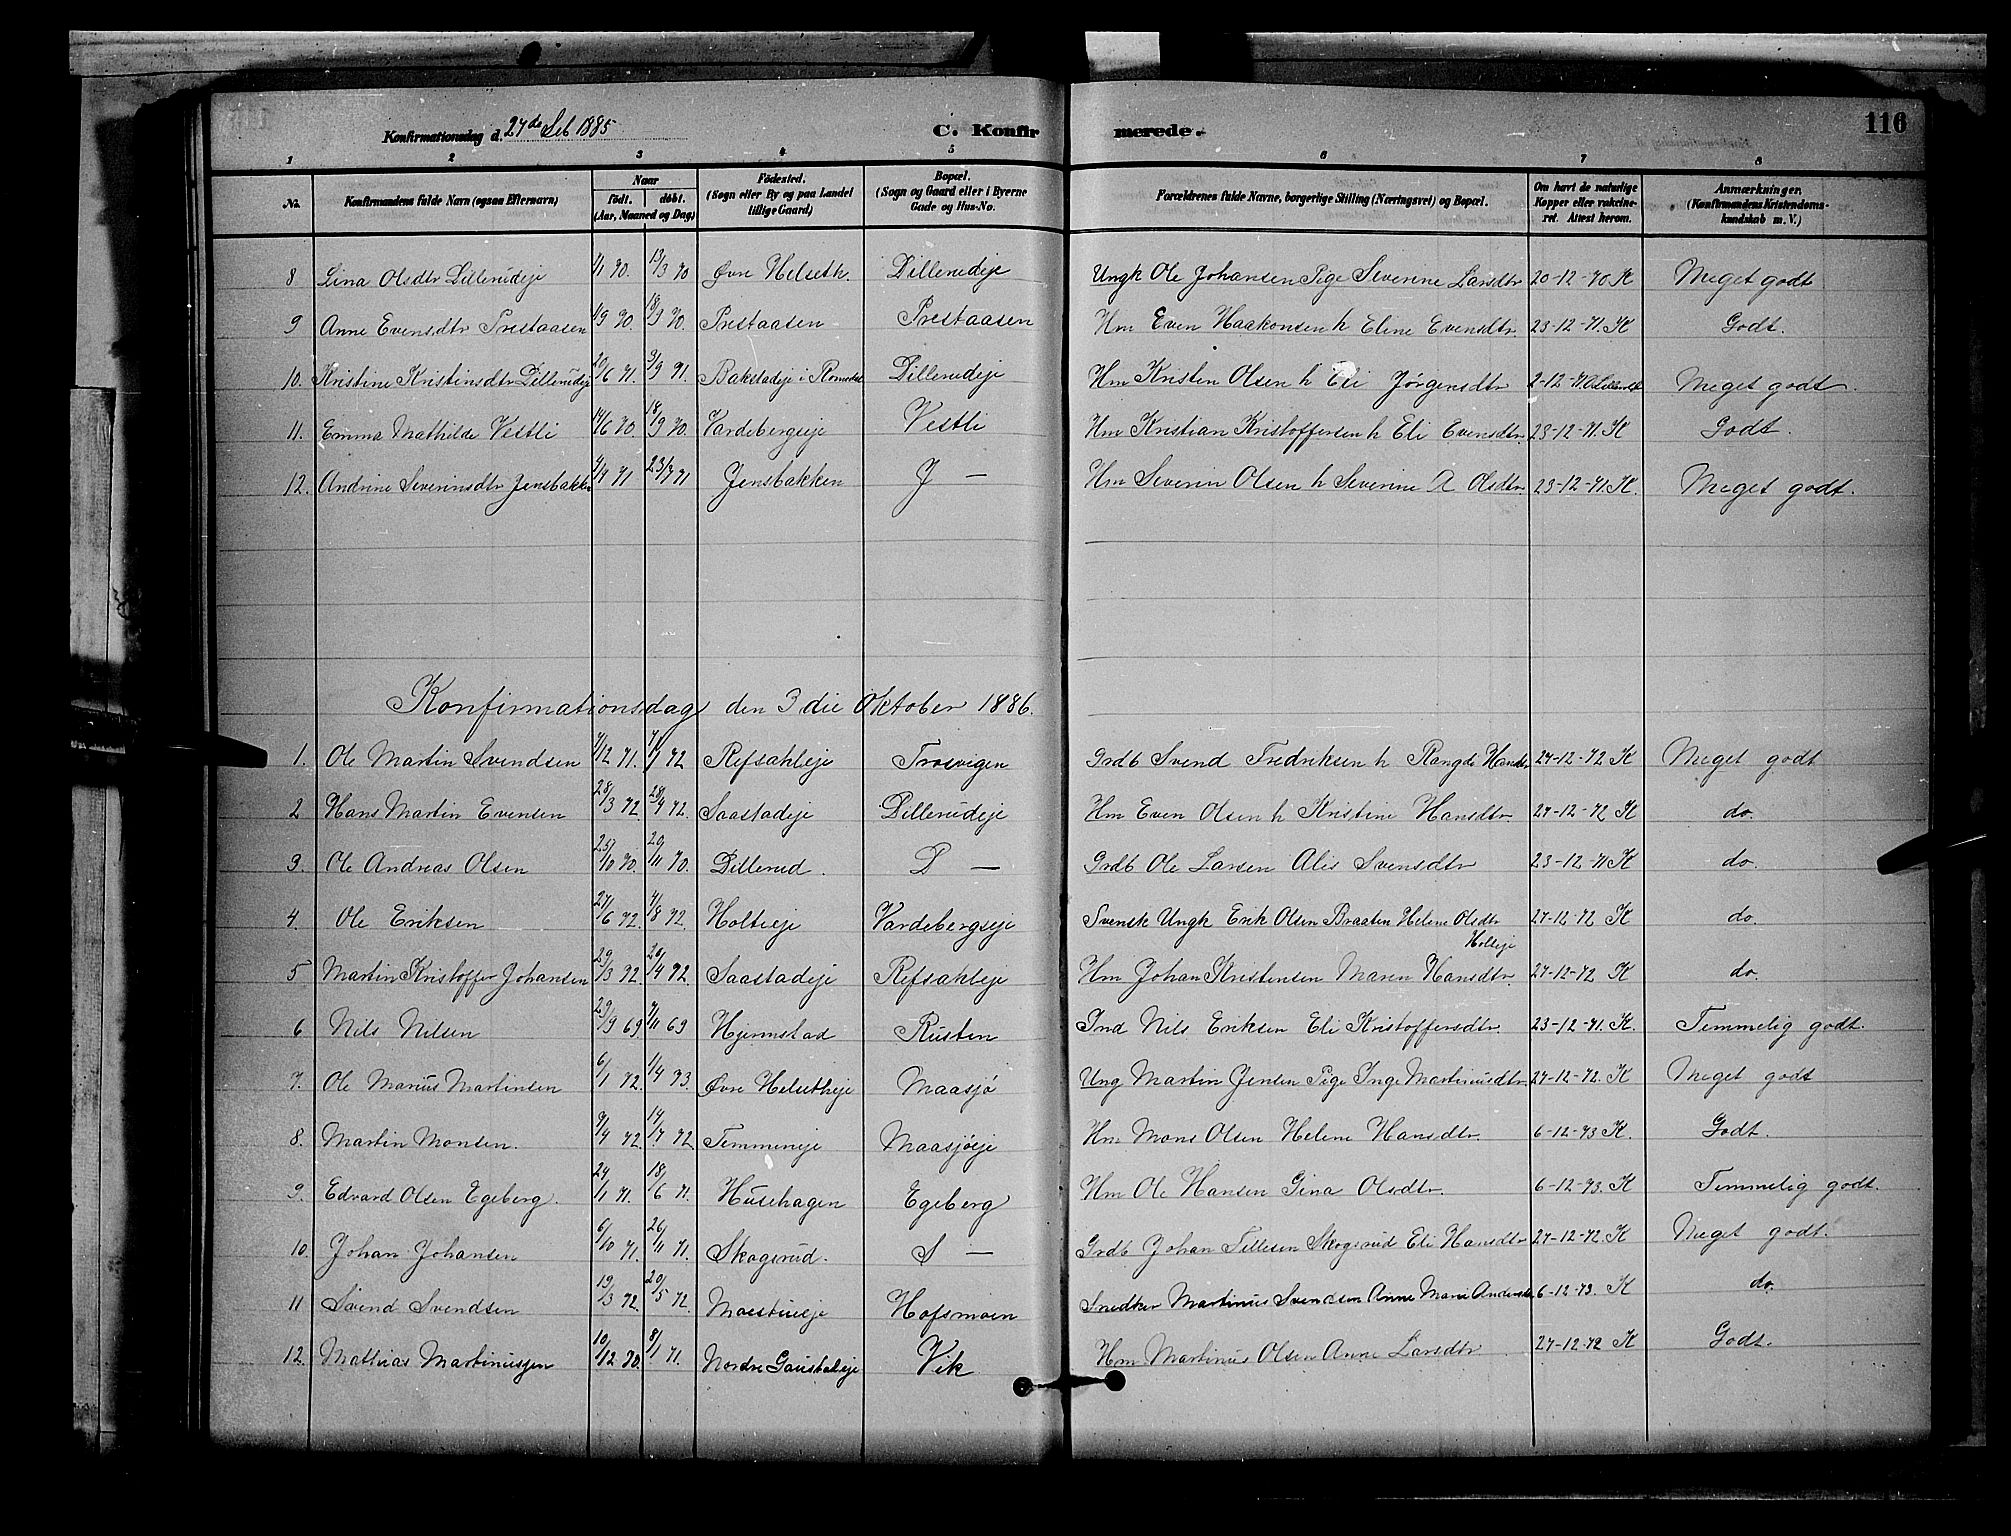 Konfirmationsdag d. 27de Sep 1885 C. Konfirmerede. 116
1 2 3 4 5 6 7 8
No. Konfirmandens fulde Navn (ogsaa Efternavn) Naar født. døbt. (Aar, Maaned og Dag) Fødested. (Sogn eller By og paa Landet tillige Gaard) Bopæl. (Sogn og Gaard eller i Byerne Gade og Hus-No. Forældrenes fulde Navne, borgerlige Stilling (Næringsvei) og Bopæl. Om havt de naturlige Kopper eller vakcineret. Attest herom. Anmærkninger. (Konfirmandens Kristendomskundskab m. V.)
8 Lina Olsdtr Dillerudeje 1/1 70. 13/3 70 Øvre Helseth. Dillerudeje Ungk Ole Johansen Pige Severine Larsdtr 20-12-70 K Meget godt
9 Anne Evensdtr Prestaasen 70. 70. Prestaasen Prestaasen Hm Even Haakonsen h Eline Evensdtr 23-12-71. K Godt.
10. Kristine Kristinsdtr Dillerudeje 20/6 71. 3/9 71. Bakstadeje i Romedal Dillerudeje Hm Kristen Olsen h Eli Jørgensdtr 2-12-71 Meget godt.
11. Emma Mathilde Vestli 14/6 70. 18/9 70. Vardebergseje Vestli Hm Kristian Kristoffersen h Eli Evensdtr 23-12-71. K Godt.
12. Andrine Severinsdtr Jensbakken 71 23/7 71 Jensbakken J — Hm Severin Olsen h Severine A Olsdtr. 23-12-71. K. Meget godt.
Konfirmationsdag den 3die Oktober 1886.
1. Ole Martin Svendsen 4/12 71. 7/1 72 Refsahleje Trosvigen Grdb Svend Fredriksen h Rangdi Hansdtr 27-12-72 K Meget godt
2 Hans Martin Evensen 28/3 72. 28/4 72. Saastadeje Dillerudeje Hm Even Olsen h Kristine Hansdtr. 27-12-72 K do.
3. Ole Andreas Olsen 25/10 70. 20/11 70. Dillerud. D — Grdb Ole Larsen Alis Svensdtr 23-12-71 K do.
4. Ole Eriksen 27/6 72. 4/8 72. Holteeje Vardebergseje Svensk Ungk Erik Olsen Braaten Helene Olsdtr Holteje 27-12-72 K do.
5 Martin Kristoffer Johansen 29/3 72. 28/4 72. Saastadeje Refsahleje Hm Johan Kristensen Maren Hansdtr. 27-12-72 K do.
6 Nils Nilsen 29/9 69. 7/11 69 Hjermstad Rusten Ind Nils Eriksen Eli Kristoffersdtr 23-12-71. K. Temmelig godt.
7. Ole Marius Martinsen 6/1 72. 1/4 73. Øvre Helsetheje Maasjø Ung Martin Jensen Pige Inge Martinusdtr 27-12-72. K Meget godt
8. Martin Monsen. 9/4 72. 14/7 72. Temmeneje Maasjøeje Hm Mons Olsen Helene Hansdtr. 6-12-73 K. Godt.
9. Edvard Olsen Egeberg. 24/1 71. 18/6 71. Husehagen Egeberg Hm Ole Hansen Gina Olsdtr. 6-12-73. K Temmelig godt.
10. Johan Johansen 6/10 71. 26/11 71. Skogsrud. S — Grdb Johan Tillesen Skogsrud Eli Hansdtr 27-12-72. K Meget godt.
11 Svend Svendsen 19/3 72. 20/5 72. Moestueje Hofsmoen Snedker Martinus Svendsen Anne Marie Andersdtr 6-12-73. K do.
12. Mathias Martinussen 10/12 70. 8/1 71. Nordre Gaustadeje Vik Hm Martinus Olsen Anne Larsdtr 27-12-72 K Godt.